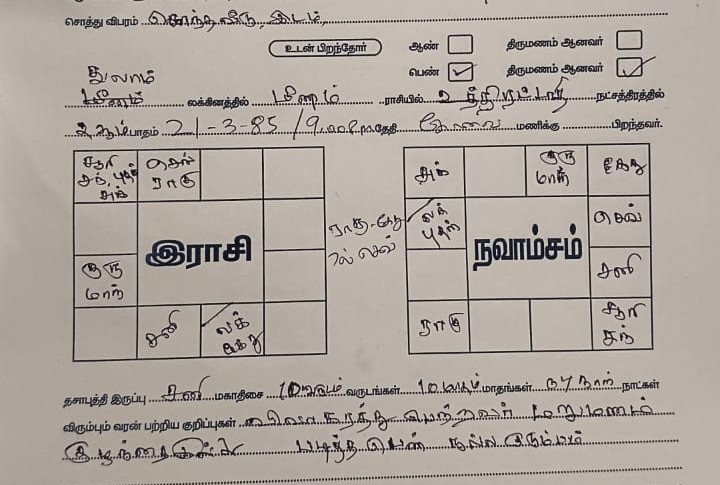 சொத்து விபரம் சொந்தவீடு, இடம்
உடன் பிறந்தோர் ஆண் திருமணம் ஆனவர்
பெண் திருமணம் ஆனவர்
துலாம்
மீனம் லக்கினத்தில் மீனம் ராசியில் உத்திரட்டாதி நட்சத்திரத்தில்
2ஆம் பாதம் 21-3-85 / 9.00 P.m தேதி கோவை மணிக்கு பிறந்தவர்.
சூரி சந், புதன் சுக்
செவ் ராகு
குரு மாந்
சனி
லக் கேது
இராசி
ராகு-கேது
ல் செவ்
சுக்
குரு மாந்
கேது
லக் புதன்
செவ்
சனி
ராகு
சூரி சந்
நவாம்சம்
தசாபுத்தி இருப்பு சனி மகாதிசை 10 வருடம் வருடங்கள் 10 மாதம் மாதங்கள் நாள் நாட்கள்
விரும்பும் வரன் பற்றிய குறிப்புகள் விவாகரத்து பெற்றவர் மறுமணம்
படித்த பெண் நல்ல குடும்பம்